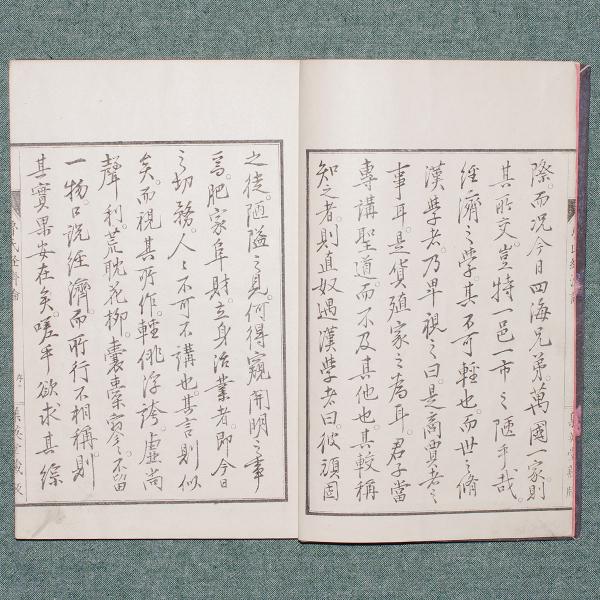 際。而況今日四海兄弟。萬國一家。則
其所交。豈特一邑一市之陋乎哉。
經濟之學其不可輕也。而世之脩
漢學者。乃卑視之曰。是商賈者之
事耳。是貨殖家之為耳。君子當
專講聖道而不及其他也。其較稱
知之者。則直奴遇漢學者曰。彼頑固
之徒。陋隘之見。何得窺開明之事
焉。肥家阜財。立身治業者。即今日
之切務。人人不可不講也。其言則似
矣。而視其所作。輕俳浮誇。虛尚
聲利。荒耽花柳。囊橐窘之。不留
一物。口說經濟。而所行不相稱。則
其實果安在矣。嗟乎欲求其綜